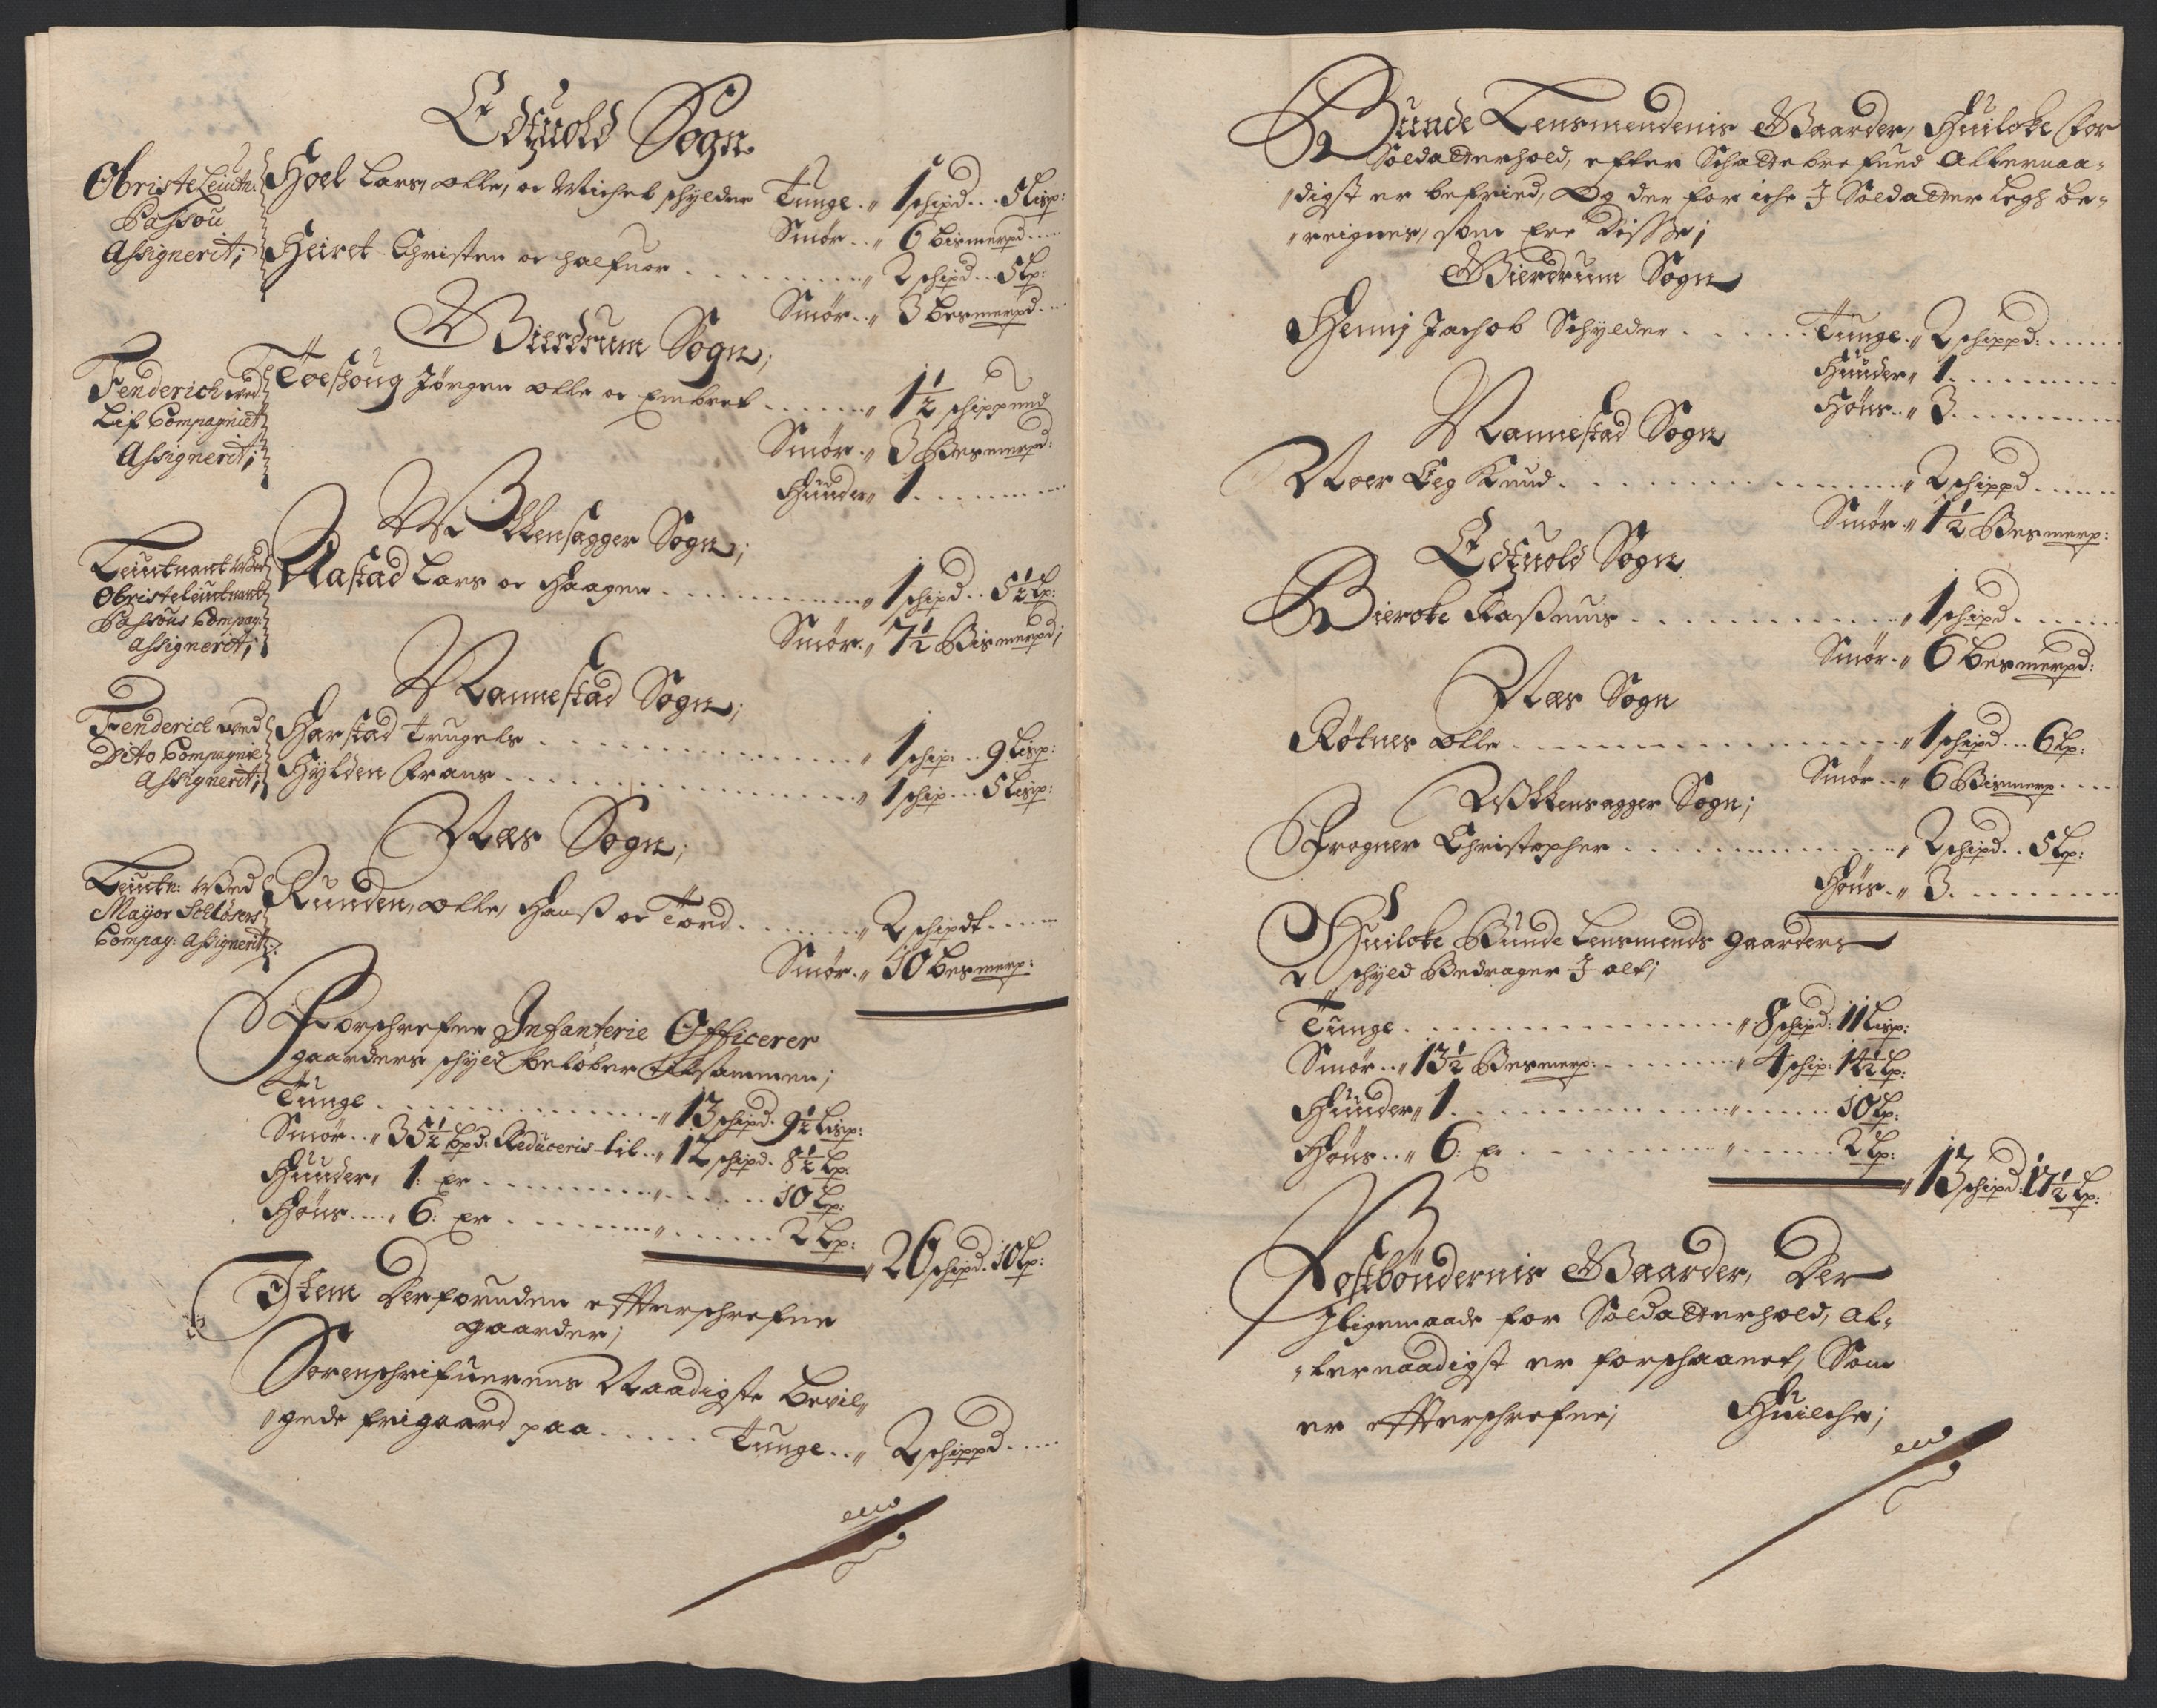 Edtzuold Sogn
ObristeLeutn:
Passou
Assignerit;
Hoel Lars, olle, oc Michel schylder Tunge „ 1 schipd . . 5 Lisp:
Smør . . „ 6 bismerpd . . .
Heiret Christen oc halfuor . . . . „ 2 schipd . . 5 Lp:
Smør . . „ 3 besmerpd . . .
Gierdrum Sogn;
Fenderich ved
Lif Compagniet
Assignerit;
Toeshoug Jørgen olle oc Embret . . . . „ 1½ schippund
Smør . „ 3 Besmerpd:
Hunder „ 1 . . . .
Ullensagger Sogn;
Leutnant ved
Obristeleutnant
Passous Compag:
assignerit;
Aastad Lars oc Haagen . . . . „ 1 schipd . . 5½ Lp:
Smør . „ 7½ Bismerpd;
Nannestad Sogn;
Fenderich ved
Dito Compagnie
Assignerit;
Harstad Trugels . . . . „ 1 schip: . . 9 Lisp:
Hylden Frans . . . . „ 1 schip . . . 5 Lisp:
Næs Sogn;
Leutn: Ved
Mayor Schløsers
Compag: Assignerit:
Runden, olle, Hanss oc Tord . . . . „ 2 schipdt . . . .
Smør . „ 10 besmerp:
Forschrefne Infanterie Officerer
gaarders schyld beløber tilsammen;
Tunge . . . . „ 13 schipd . 9½ Lisp:
Smør . . „ 35½ bpd: Reduceris til . . „ 12 schipd . 8½ Lp:
Hunder „ 1: er . . . . „ . . . . 10 Lp:
Høns . . . . „ 6: er . . . . „ . . . . 2 Lp:
„ 26 schipd . 10 Lp:
Item Derforuden effterschrefne
gaarder;
Sorenschrifuerens Naadigste bevil„
„gede frigaard paa . . . . Tunge . . „ 2 schippd . . . .
Bunde Lensmendenis Gaarder, Huilcke for
Soldatterhold, efter Schattebrefued Allernaa„
„digst er befried, Og der for iche J Soldatter Legh be„
„reignes, som ere Disse;
Gierdrum Sogn
Henni Jachob Schylder . . . . Tunge „ 2 schippd: . . . .
Hunder „ 1 . . . .
Høns . . „ 3 . . . .
Nannestad Sogn
Knud . . . . „ 2 schippd . . . .
Smør . „ 1½ Besmerp:
Edtzuold Sogn
Bierche Rassmus . . . . „ 1 schipd . . . .
Smør . „ 6 besmerpd:
Næs Sogn
Røtnes olle . . . . „ 1 schipd . . . 6 Lp:
Smør . . „ 6 Bismerp . . . .
Ullensagger Sogn;
Frogner Christopher . . . . „ 2 schipd . . 5 Lp:
Høns . „ 3 . . . .
Huilcke Bunde Lensmends gaarders
schyld Bedrager J alt;
Tunge . . . . „ 8 schipd: 11 Lisp:
Smør . . „ 13½ Besmerp: . . . . „ 4 schip: 14½ Lp:
Hunder „ 1 . . . . „ . . . . 10 Lp:
Høns . . „ 6: er . . . . „ . . . . 2 Lp:
„ 13 schipd: 17½ Lp:
Postbøndernis Gaarder, Der
Jligemaade for Soldatterhold, al„
„lernaadigst er forschaanet, Som
er effterschrefne; Huilche;